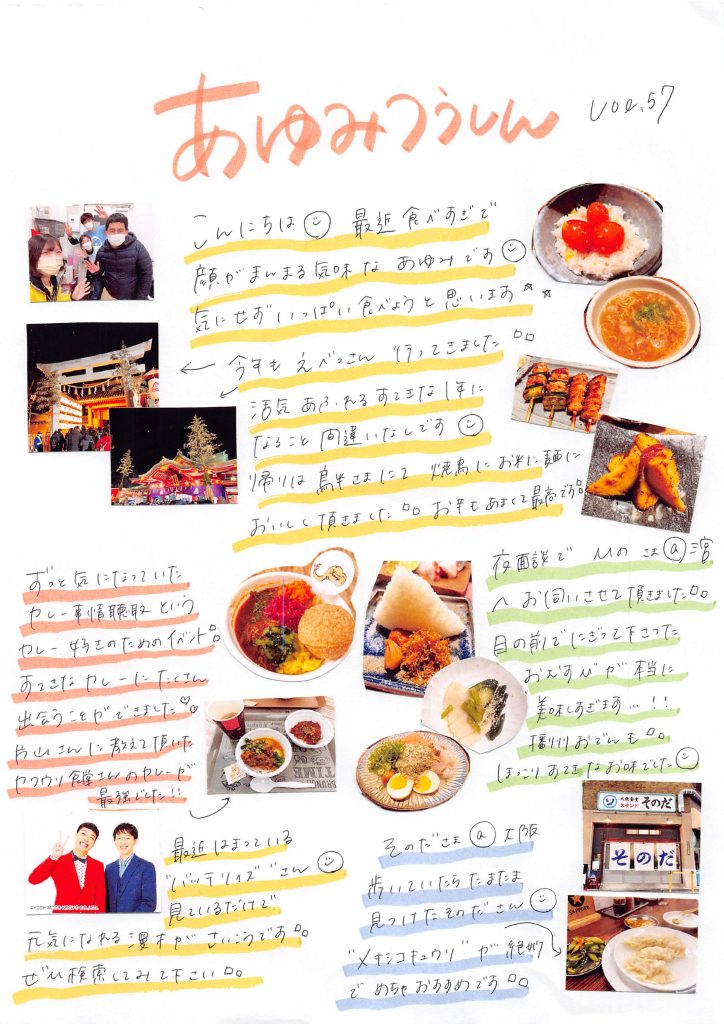 あゆみつうしん
vol.57
こんにちは 最近食べすぎで
顔がまんまる気味な あゆみです
気にせずいっぱい食べようと思います
今年も えべっさん 行ってきました
活気あふれるすてきな1年に
なること間違いなしです
帰りは 鳥牛さまにて 焼鳥にお米に麺に
おいしく頂きました お芋もあまくて最高です
ずっと気になっていた
カレー事情聴取という
カレー好きのためのイベント
すてきなカレーにたくさん
出会うことができました
片山さんに教えて頂いた
食堂さんのカレーが
最強でした!!
夜面談で のさま@三宮
へお伺いさせて頂きました
目の前でにぎって下さった
おむすびが本当に
美味しすぎます…!!
播州おでんも
ほっこりすてきなお味でした
最近はまっている
"バッテリィズ"さん
見ているだけで
元気になれる漫才がさいこうです
ぜひ検索してみて下さい
そのださま@大阪
歩いていたらたまたま
見つけたそのださん
"メキシコキュウリ"が絶妙
でめちゃおすすめです
大衆食堂
スタンド そのだ
そのだ
SAPPORO
TIME